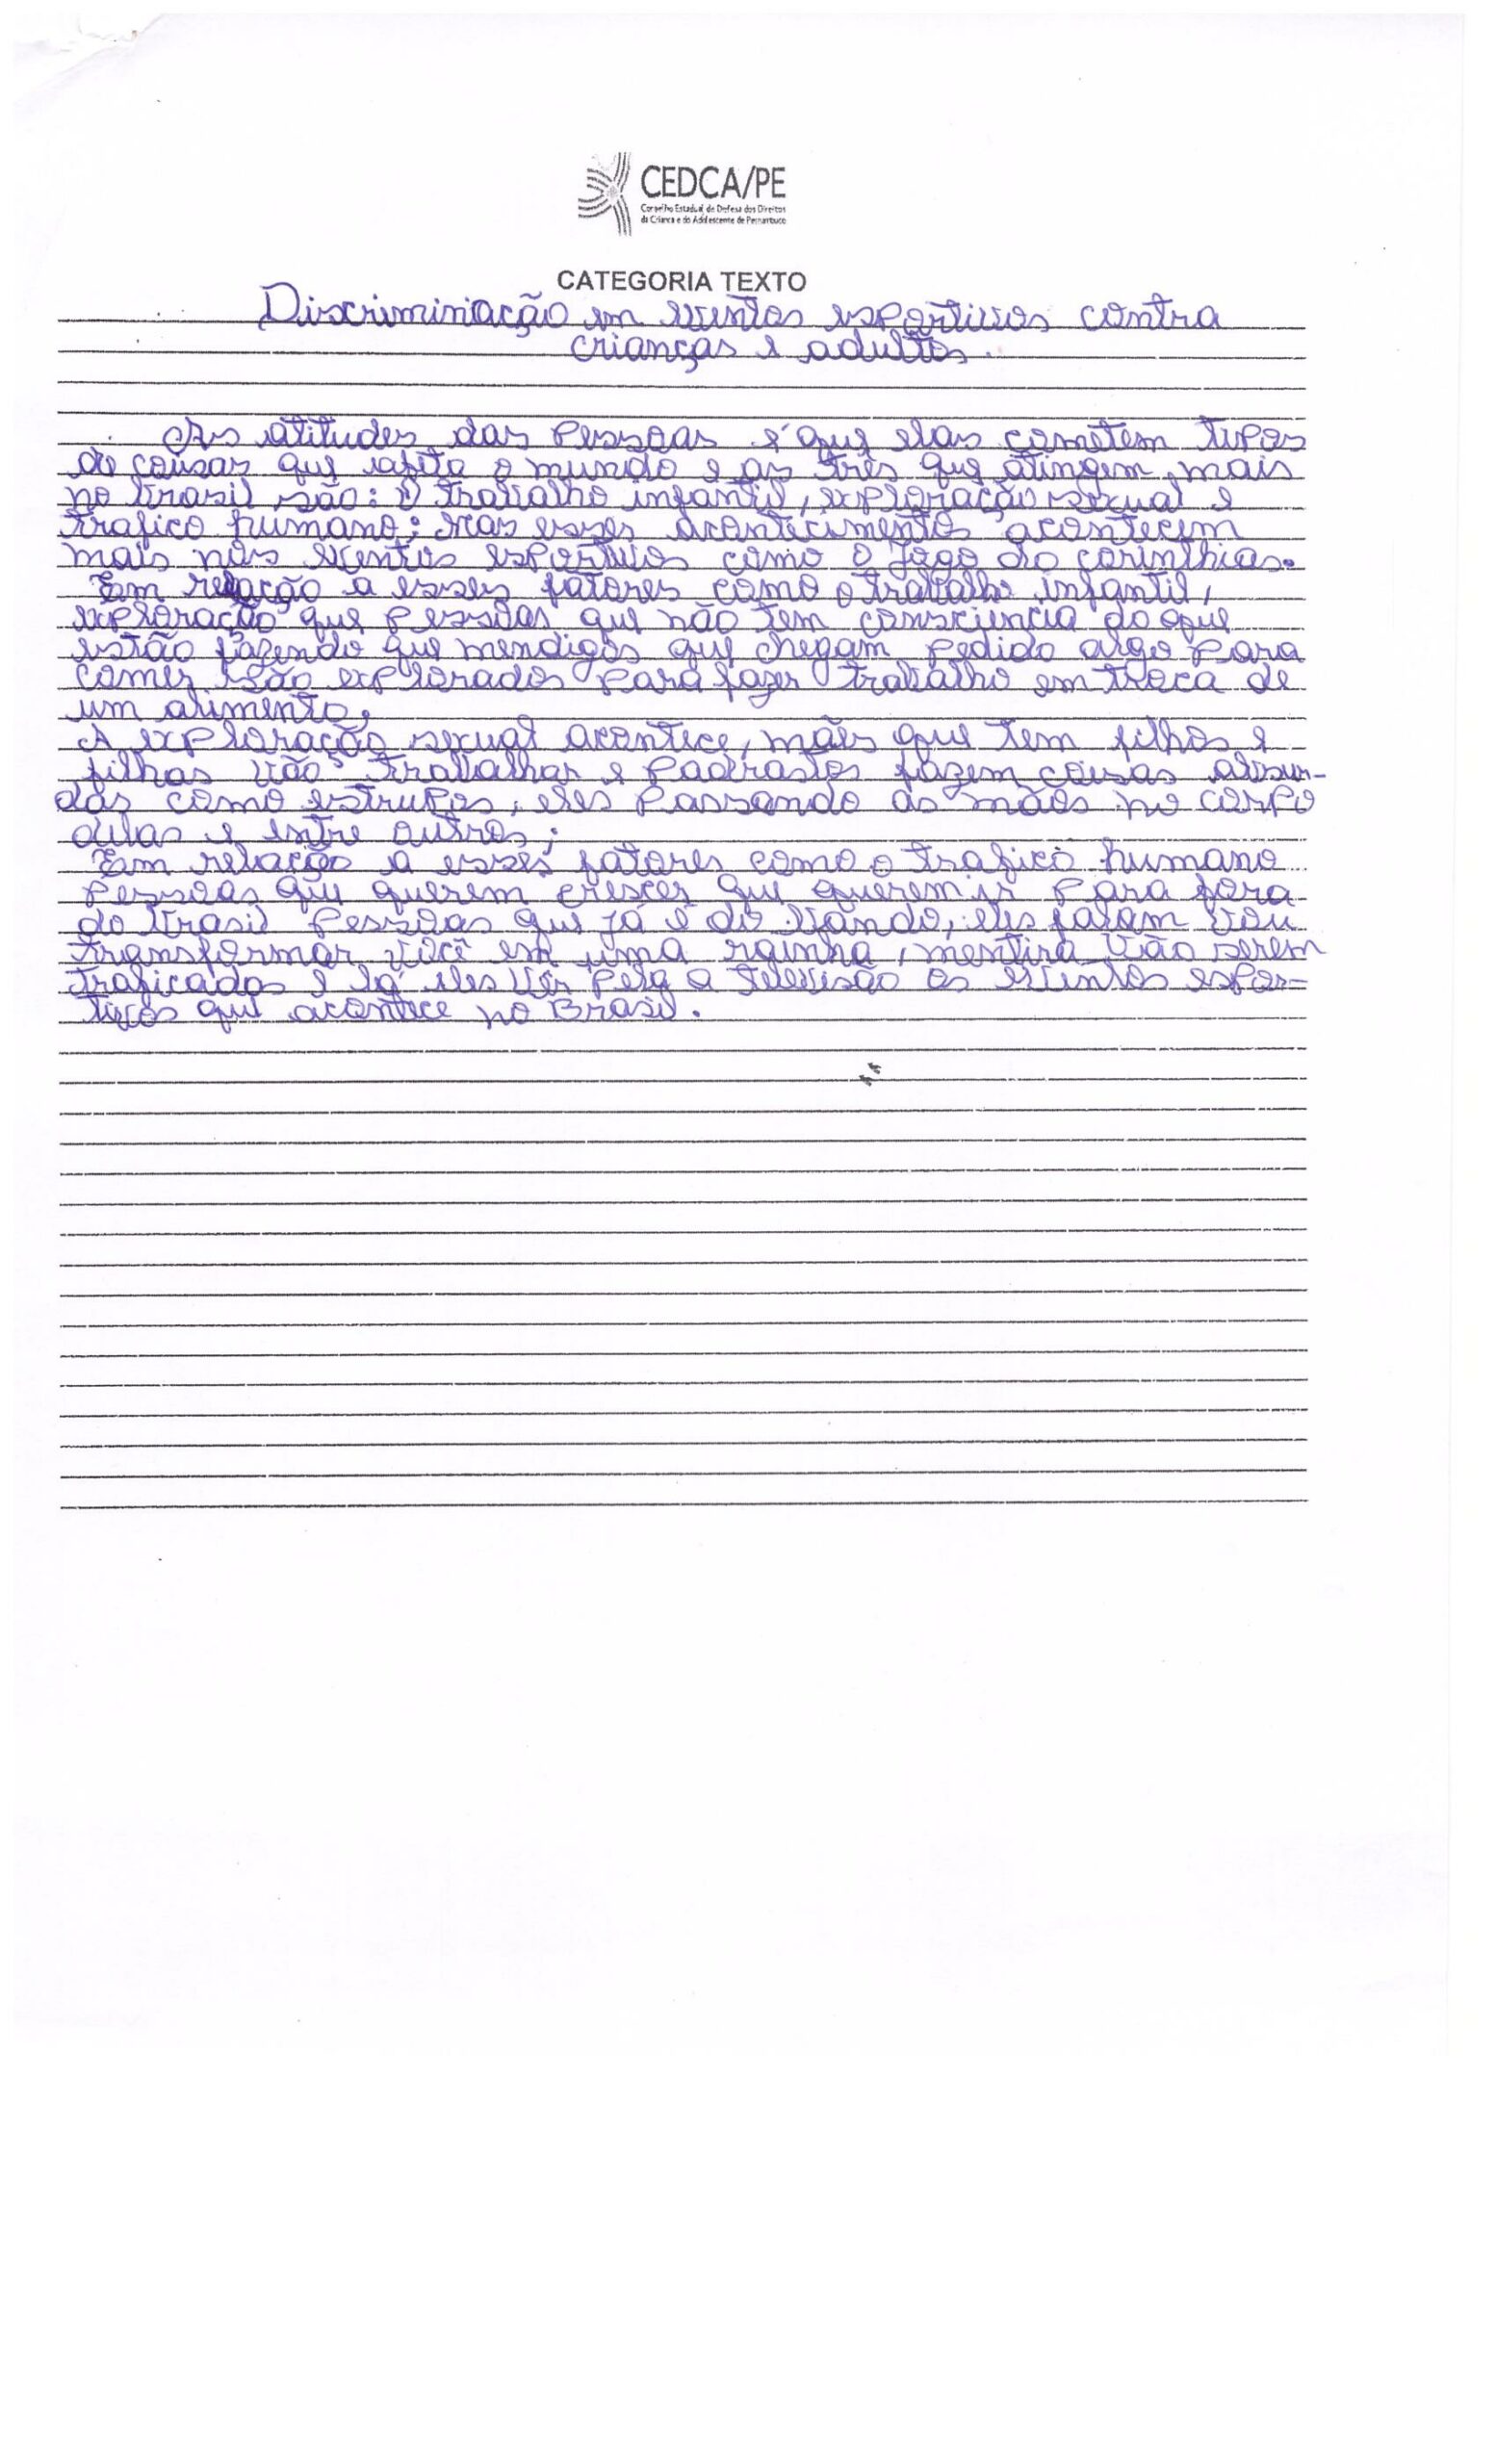 CEDCA/PE
Conselho Estadual de Defesa dos Direitos
da Criança e do Adolescente de Pernambuco
CATEGORIA TEXTO
Discriminiação em eventos esportivos contra
crianças e adultos.
As atitudes das pessoas é que elas cometem tipos
de coisas que afeta o mundo e as três que atingem mais
no brasil são: O trabalho infantil, exploração sexual e
trafico humano; Mas esses acontecimentos acontecem
mais nos eventos esportivos como o Jogo do corinthias.
Em relação a esses fatores como o trabalho infantil,
exploração que pessoas que não tem consciencia do que
estão fazendo que mendigos que chegam pedido algo para
comer são explorados para fazer trabalho em troca de
um alimento;
A exploração sexual acontece, mães que tem filhos e
filhas vão trabalhar e padrastos fazem coisas absur-
das como estrupos, eles passando as mãos no corpo
delas e entre outros;
Em relação a esses fatores como o trafico humano
pessoas que querem crescer que querem ir para fora
do brasil pessoas que já é do bando, eles falam vou
transformar você em uma rainha, mentira vão serem
traficados e lá eles vêr pela a televisão os eventos espor-
tivos que acontece no Brasil.